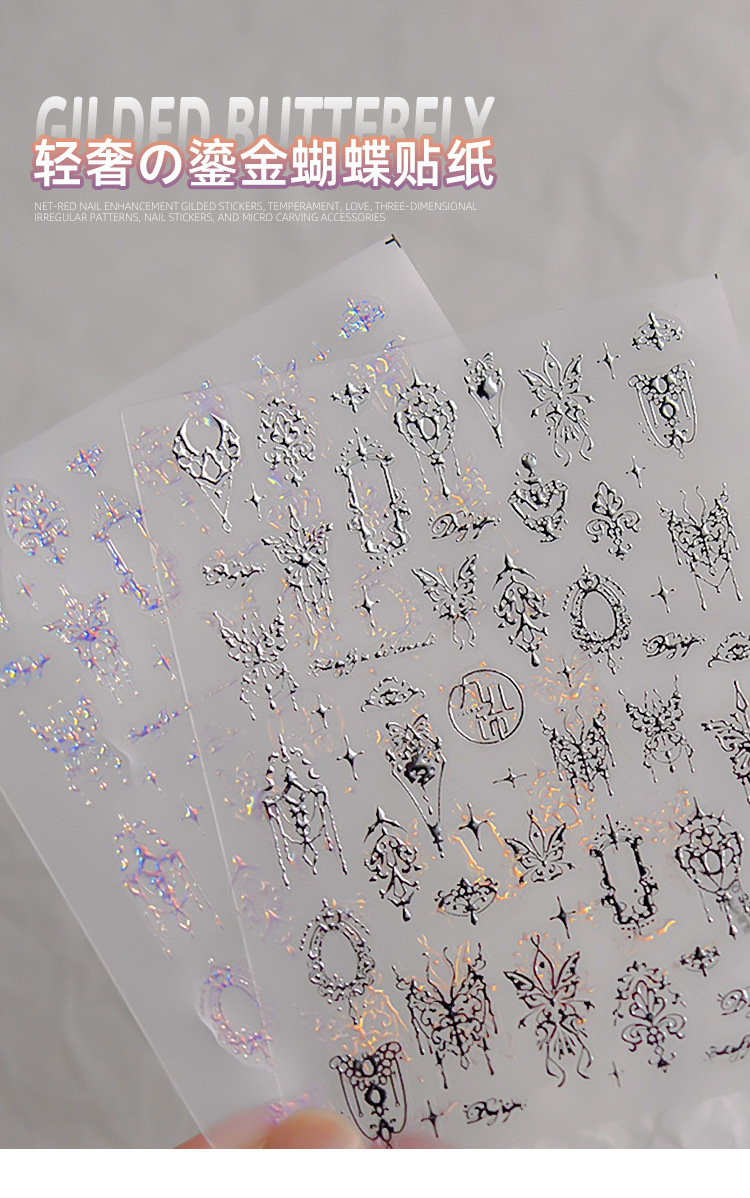 GILDED BUTTERFLY
轻奢の鎏金蝴蝶贴纸
NET-RED NAIL ENHANCEMENT GILDED STICKERS, TEMPERAMENT, LOVE, THREE-DIMENSIONAL
IRREGULAR PATTERNS, NAIL STICKERS, AND MICRO CARVING ACCESSORIES